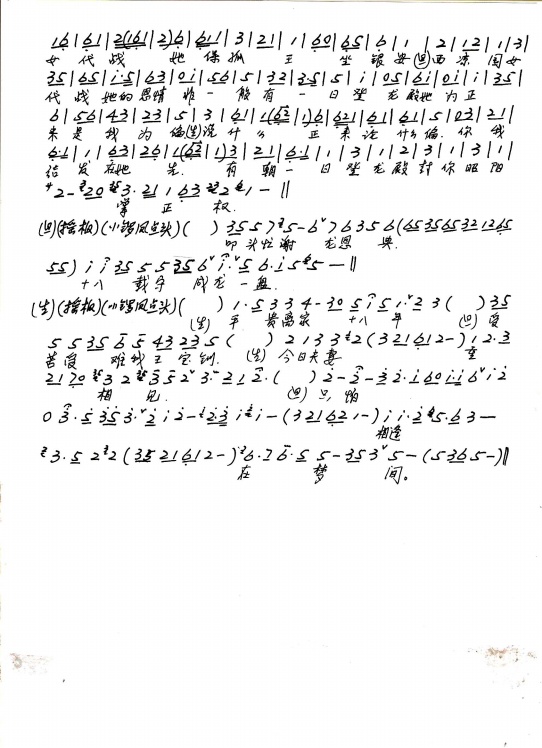 16|61|2(161|2)6|611|3|21|1|60|65|6|1|2|12|1|3|
女代战 她保孤王 坐银安(旦)西凉国女
35|65|i·5|63|0i|56|5|32|35|5|i|05|6i|0i|i|35|
代战她的恩情 非一般有一日坐龙殿她为正
6|56|43|23|5|3|61|1(62|1)6|621|61|61|5|03|21|
来是我为偏(生)说什么 正来论什么偏.你我
6·1|1|63|26|1(62|1)3|21|6·1|1|3|1|2|3|1|3|1|
结发在她先.有朝一日坐龙殿封你昭阳
2-20 3·21163 2 1-‖
掌正权.
(旦)(摇板)(小锣凤点头)( )3557 5-6 76356(6535653212 65
叩头忙谢 龙恩典.
55)ii355356 i·5 6·i5 5-‖
十八载守成龙一盘.
(生)(摇板)(小锣凤点头)( )1·5334-305i51·23( )35
(生)平贵离家 十八年 (旦)受
5535654323 5( )2133 2(321612-)12·3
苦受难我王宝钏.(生)今日夫妻 重
2120 32 352 3·212·( )2-2-32·i60ii6i2
相见. (旦)只怕
03·5353·2i2-2·3ii-(321621-)ii·2 5·63-
相逢
3·52 2(3521612-)6·76·55-3535-(5365-)‖
在梦间。